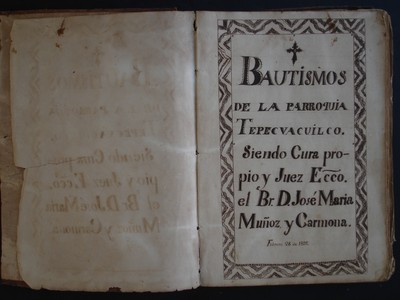 BAUTÍSMOS
DE LA PARROQUIA
TEPECVACUÍLCO.
Siendo Cura pro-
pio y Juez Ecco.
el Br. D. José Maria
Muñoz y Carmona.